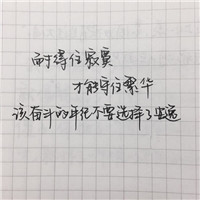 耐得住寂寞
才能守住繁华
该奋斗的年纪不要选择了安逸